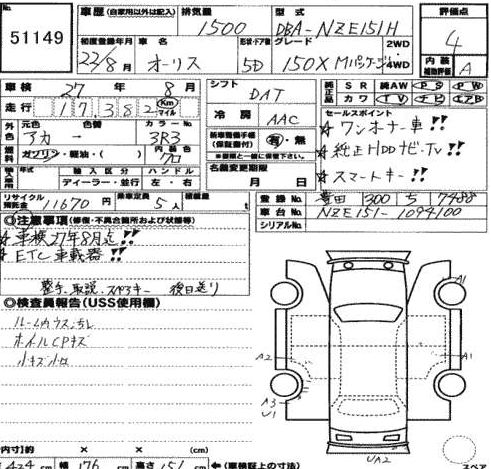 51149
車歴 (自家用以外は記入) 排気量 1500 型式 DBA-NZE151H 評価点 4
初度登録年月 22/8 月 車名 オーリス 形状・ドア数 5D グレード 150X Mパッケージ 2WD・4WD 内装補助評価 A
車検 27 年 8 月 シフト DAT 純正品 SR 純AW PS PW
走行 17,382 Km マイル 冷房 AAC カワ TV ナビ エアB
外色 元色 アカ 色替 - カラーNo. 3R3 新車整備手帳(保証書付) 有・無 セールスポイント
☆ ワンオーナー車!!
燃料 ガソリン・軽油・( ) 内装色 クロ ※書類と一緒に保管して下さい。 ☆ 純正HDDナビ・TV!!
年式 輸入区分 ハンドル 名義変更期限
ディーラー・並行 左・右 月 日 ☆ スマートキー!!
リサイクル預託金 11670 円 乗車定員 5 人 積載量 t 登録No. 豊田 300 ち 7488
◎注意事項(修復・不具合箇所および状態等) 車台No. NZE151-1094100
シリアルNo.
☆ 車検27年8月迄!!
☆ ETC車載器!!
整手、取説、スペアキー 後日送り
◎検査員報告(USS使用欄)
ルーム内ウスヨゴレ
ホイルCPキズ
小キズ小凹
A1
A2
A1
A3
U1
UA2
内寸】約 × × (cm)
424 cm 幅 176 cm 高さ 151 cm ←(車検証上の寸法) スペア